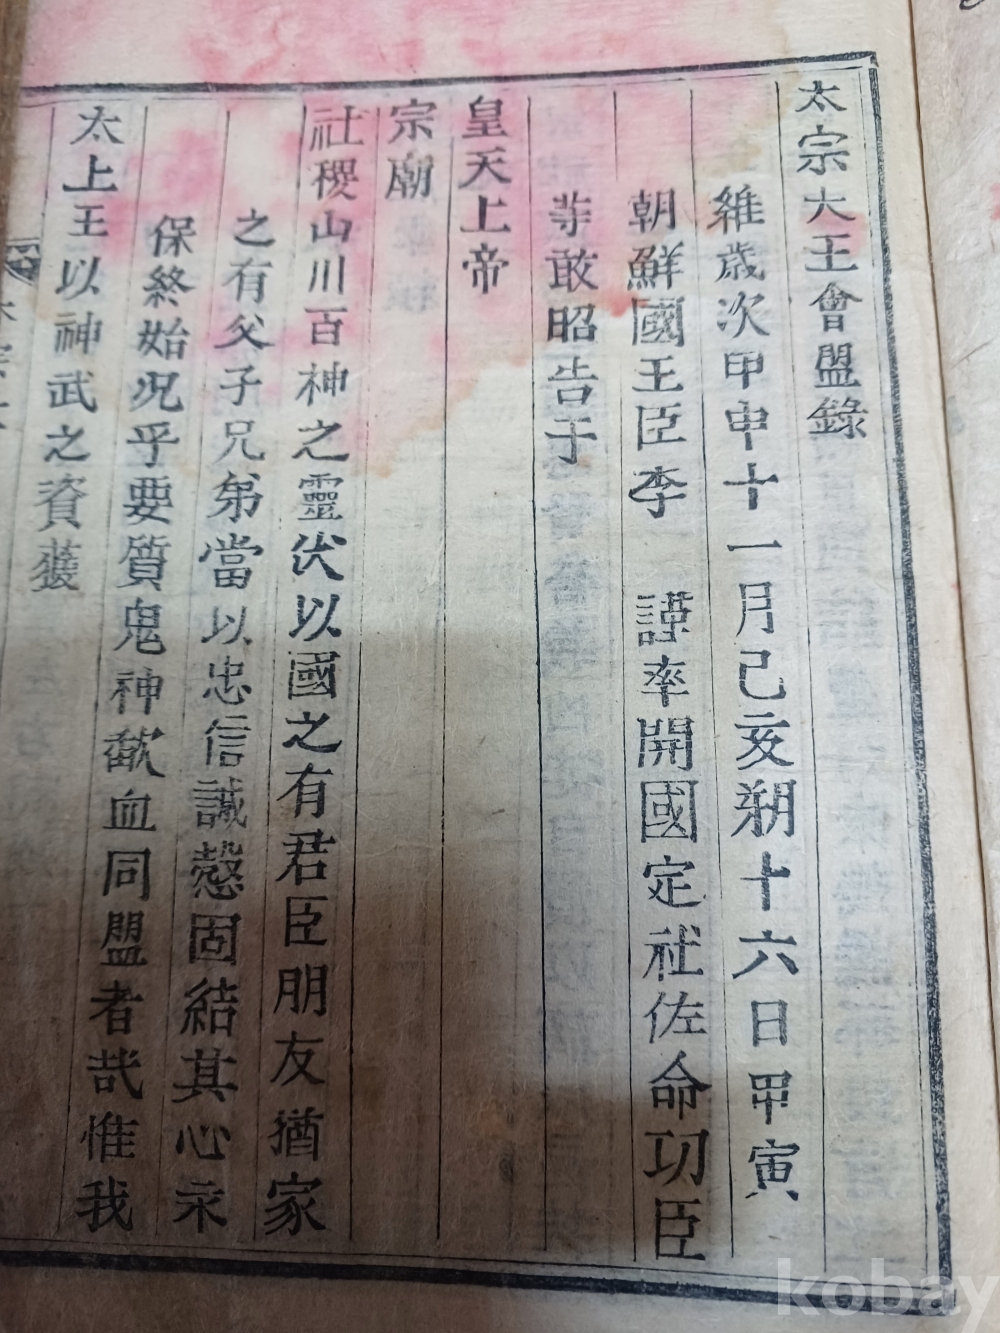 太宗大王會盟錄
維歲次甲申十一月己亥朔十六日甲寅
朝鮮國王臣李 謹率開國定社佐命功臣
等敢昭告于
皇天上帝
宗廟
社稷山川百神之靈伏以國之有君臣朋友猶家
之有父子兄弟當以忠信誠慤固結其心永
保終始况乎要質鬼神歃血同盟者哉惟我
太上王以神武之資獲
kobay